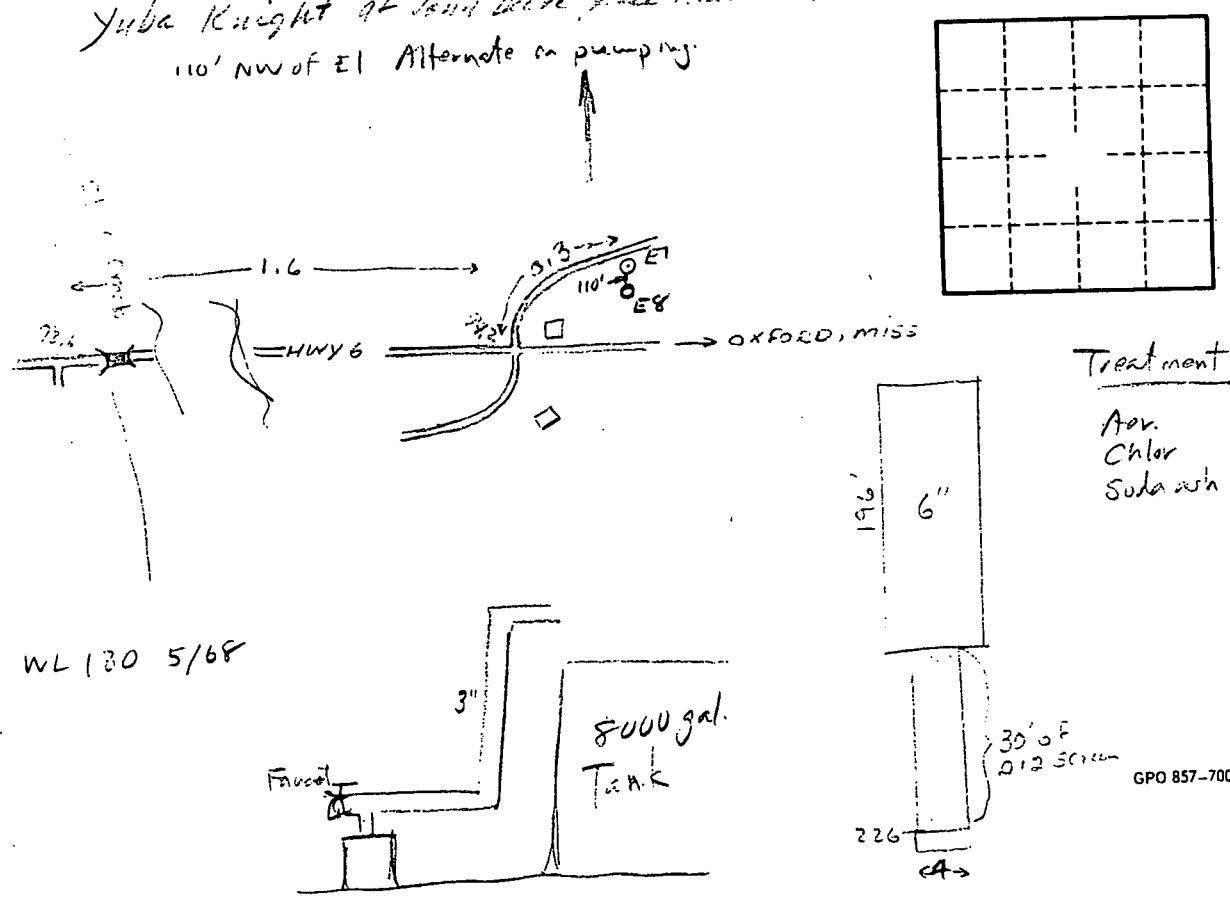 Yuba Knight at
110' NW of E1 Alternate on pumping.
1.6
0.3
E7
110'
E8
HWY 6
OXFORD, MISS
Treatment
Aer.
Chlor
Soda ash
196'
6"
WL 130 5/68
3"
8000 gal.
Tank
Faucet
30' of
012 Screen
GPO 857-700
226
4